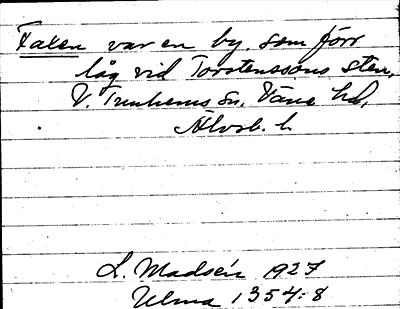 Faken var en by, som förr
låg vid Torstenssons sten,
V. Tunhems sn. Väne hd,
Älvsb. l.
L. Madsén 1927
Ulma 1354:8